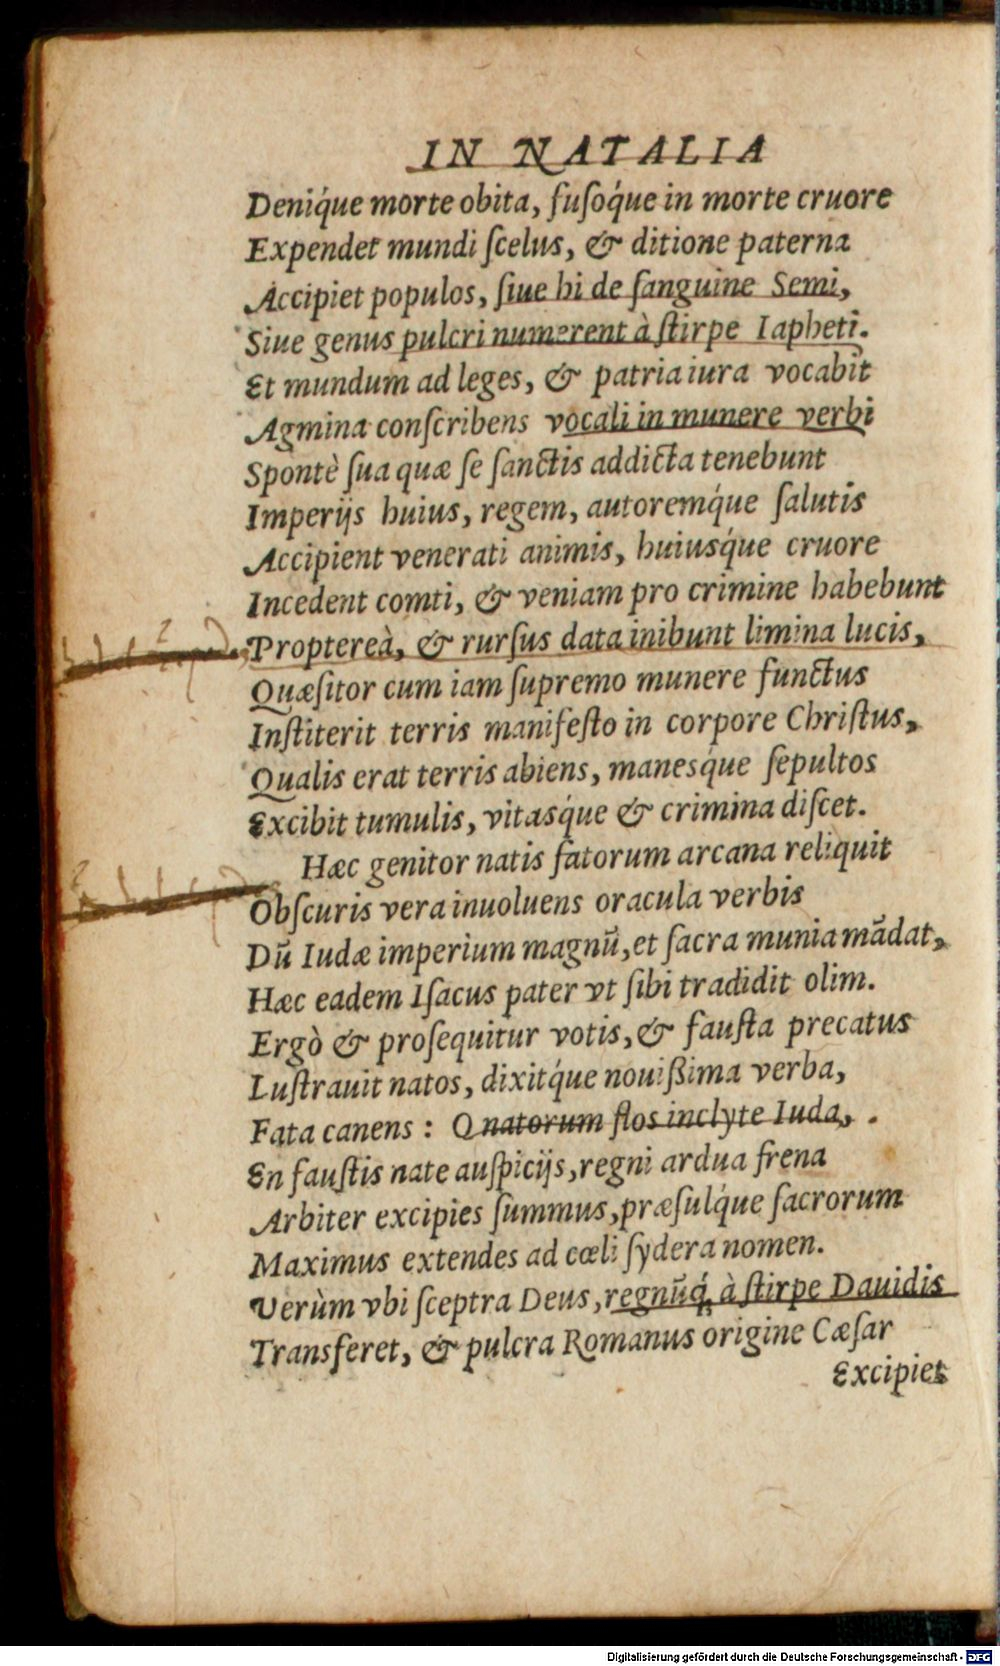 IN NATALIA
Deniq́ue morte obita, fuſoq́ue in morte cruore
Expendet mundi ſcelus, & ditione paterna
Accipiet populos, ſiue hi de ſanguine Semi,
Siue genus pulcri numerent à ſtirpe Iapheti.
Et mundum ad leges, & patria iura vocabit
Agmina conſcribens vocali in munere verbi
Spontè ſua quæ ſe ſanctis addicta tenebunt
Imperijs huius, regem, autoremq́ue ſalutis
Accipient venerati animis, huiusq́ue cruore
Incedent comti, & veniam pro crimine habebunt
Propterea̍, & rurſus data inibunt limina lucis,
Quæſitor cum iam ſupremo munere functus
Inſtiterit terris manifeſto in corpore Chriſtus,
Qualis erat terris abiens, manesq́ue ſepultos
Excibit tumulis, vitasq́ue & crimina diſcet.
Hæc genitor natis fatorum arcana reliquit
Obſcuris vera inuoluens oracula verbis
Dū Iudæ imperium magnū, et ſacra munia mādat,
Hæc eadem Iſacus pater vt ſibi tradidit olim.
Ergò & proſequitur votis, & fauſta precatus
Luſtrauit natos, dixitq́ue nouißima verba,
Fata canens : O natorum flos inclyte Iuda, .
En fauſtis nate auſpicijs, regni ardua frena
Arbiter excipies ſummus, præſulq́ue ſacrorum
Maximus extendes ad cœli ſydera nomen.
Verùm vbi ſceptra Deus, regnūq́; à ſtirpe Dauidis
Transferet, & pulcra Romanus origine Cæſar
Excipiet
Digitalisierung gefördert durch die Deutsche Forschungsgemeinschaft - DFG